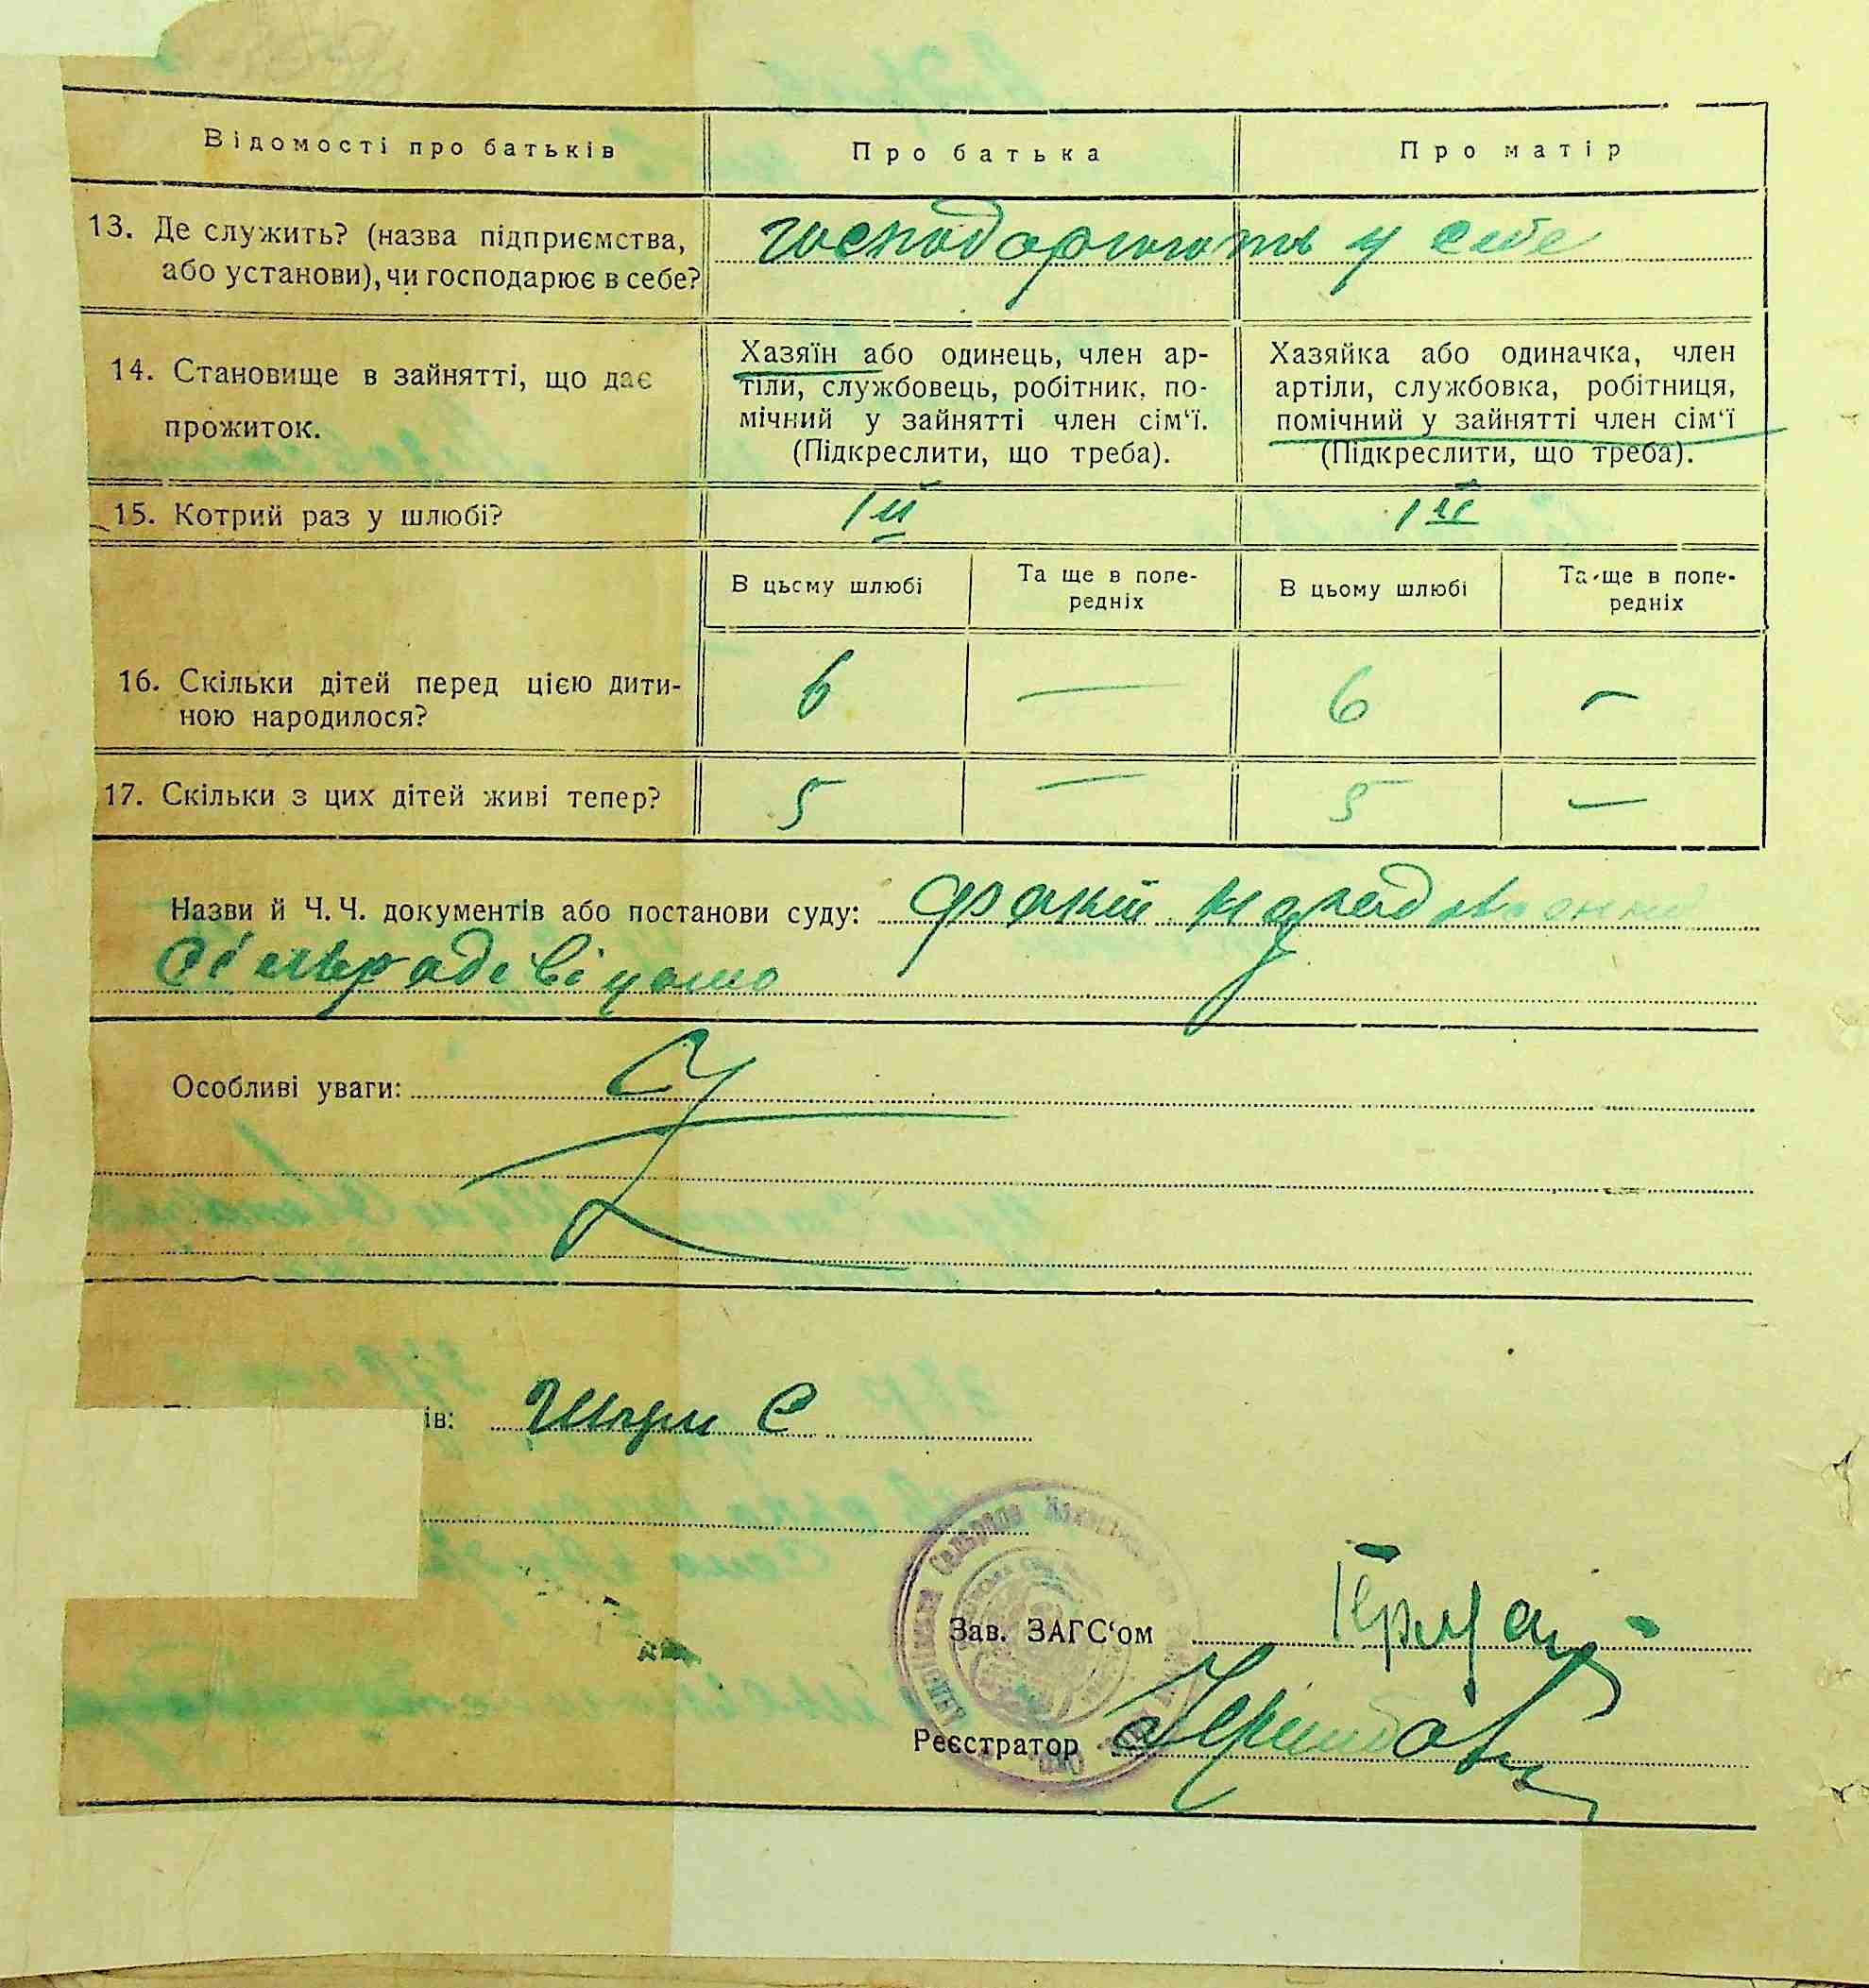 Відомості про батьків
Про батька
Про матір
13. Де служить? (назва підприємства, або установи), чи господарює в себе?
господарюють у себе
14. Становище в зайнятті, що дає прожиток.
Хазяїн або одинець, член ар-
тіли, службовець, робітник, по-
мічний у зайнятті член сім‘ї.
(Підкреслити, що треба).
Хазяйка або одиначка, член
артіли, службовка, робітниця,
помічний у зайнятті член сім‘ї
(Підкреслити, що треба).
15. Котрий раз у шлюбі?
1й
1й
В цьому шлюбі
Та ще в попе-
редніх
В цьому шлюбі
Та ще в попе-
редніх
16. Скільки дітей перед цією дити-
ною народилося?
6
—
6
—
17. Скільки з цих дітей живі тепер?
5
—
5
—
Назви й Ч. Ч. документів або постанови суду:
сільраді відомо
Особливі уваги:
ів:
Зав. ЗАГС‘ом
Реєстратор